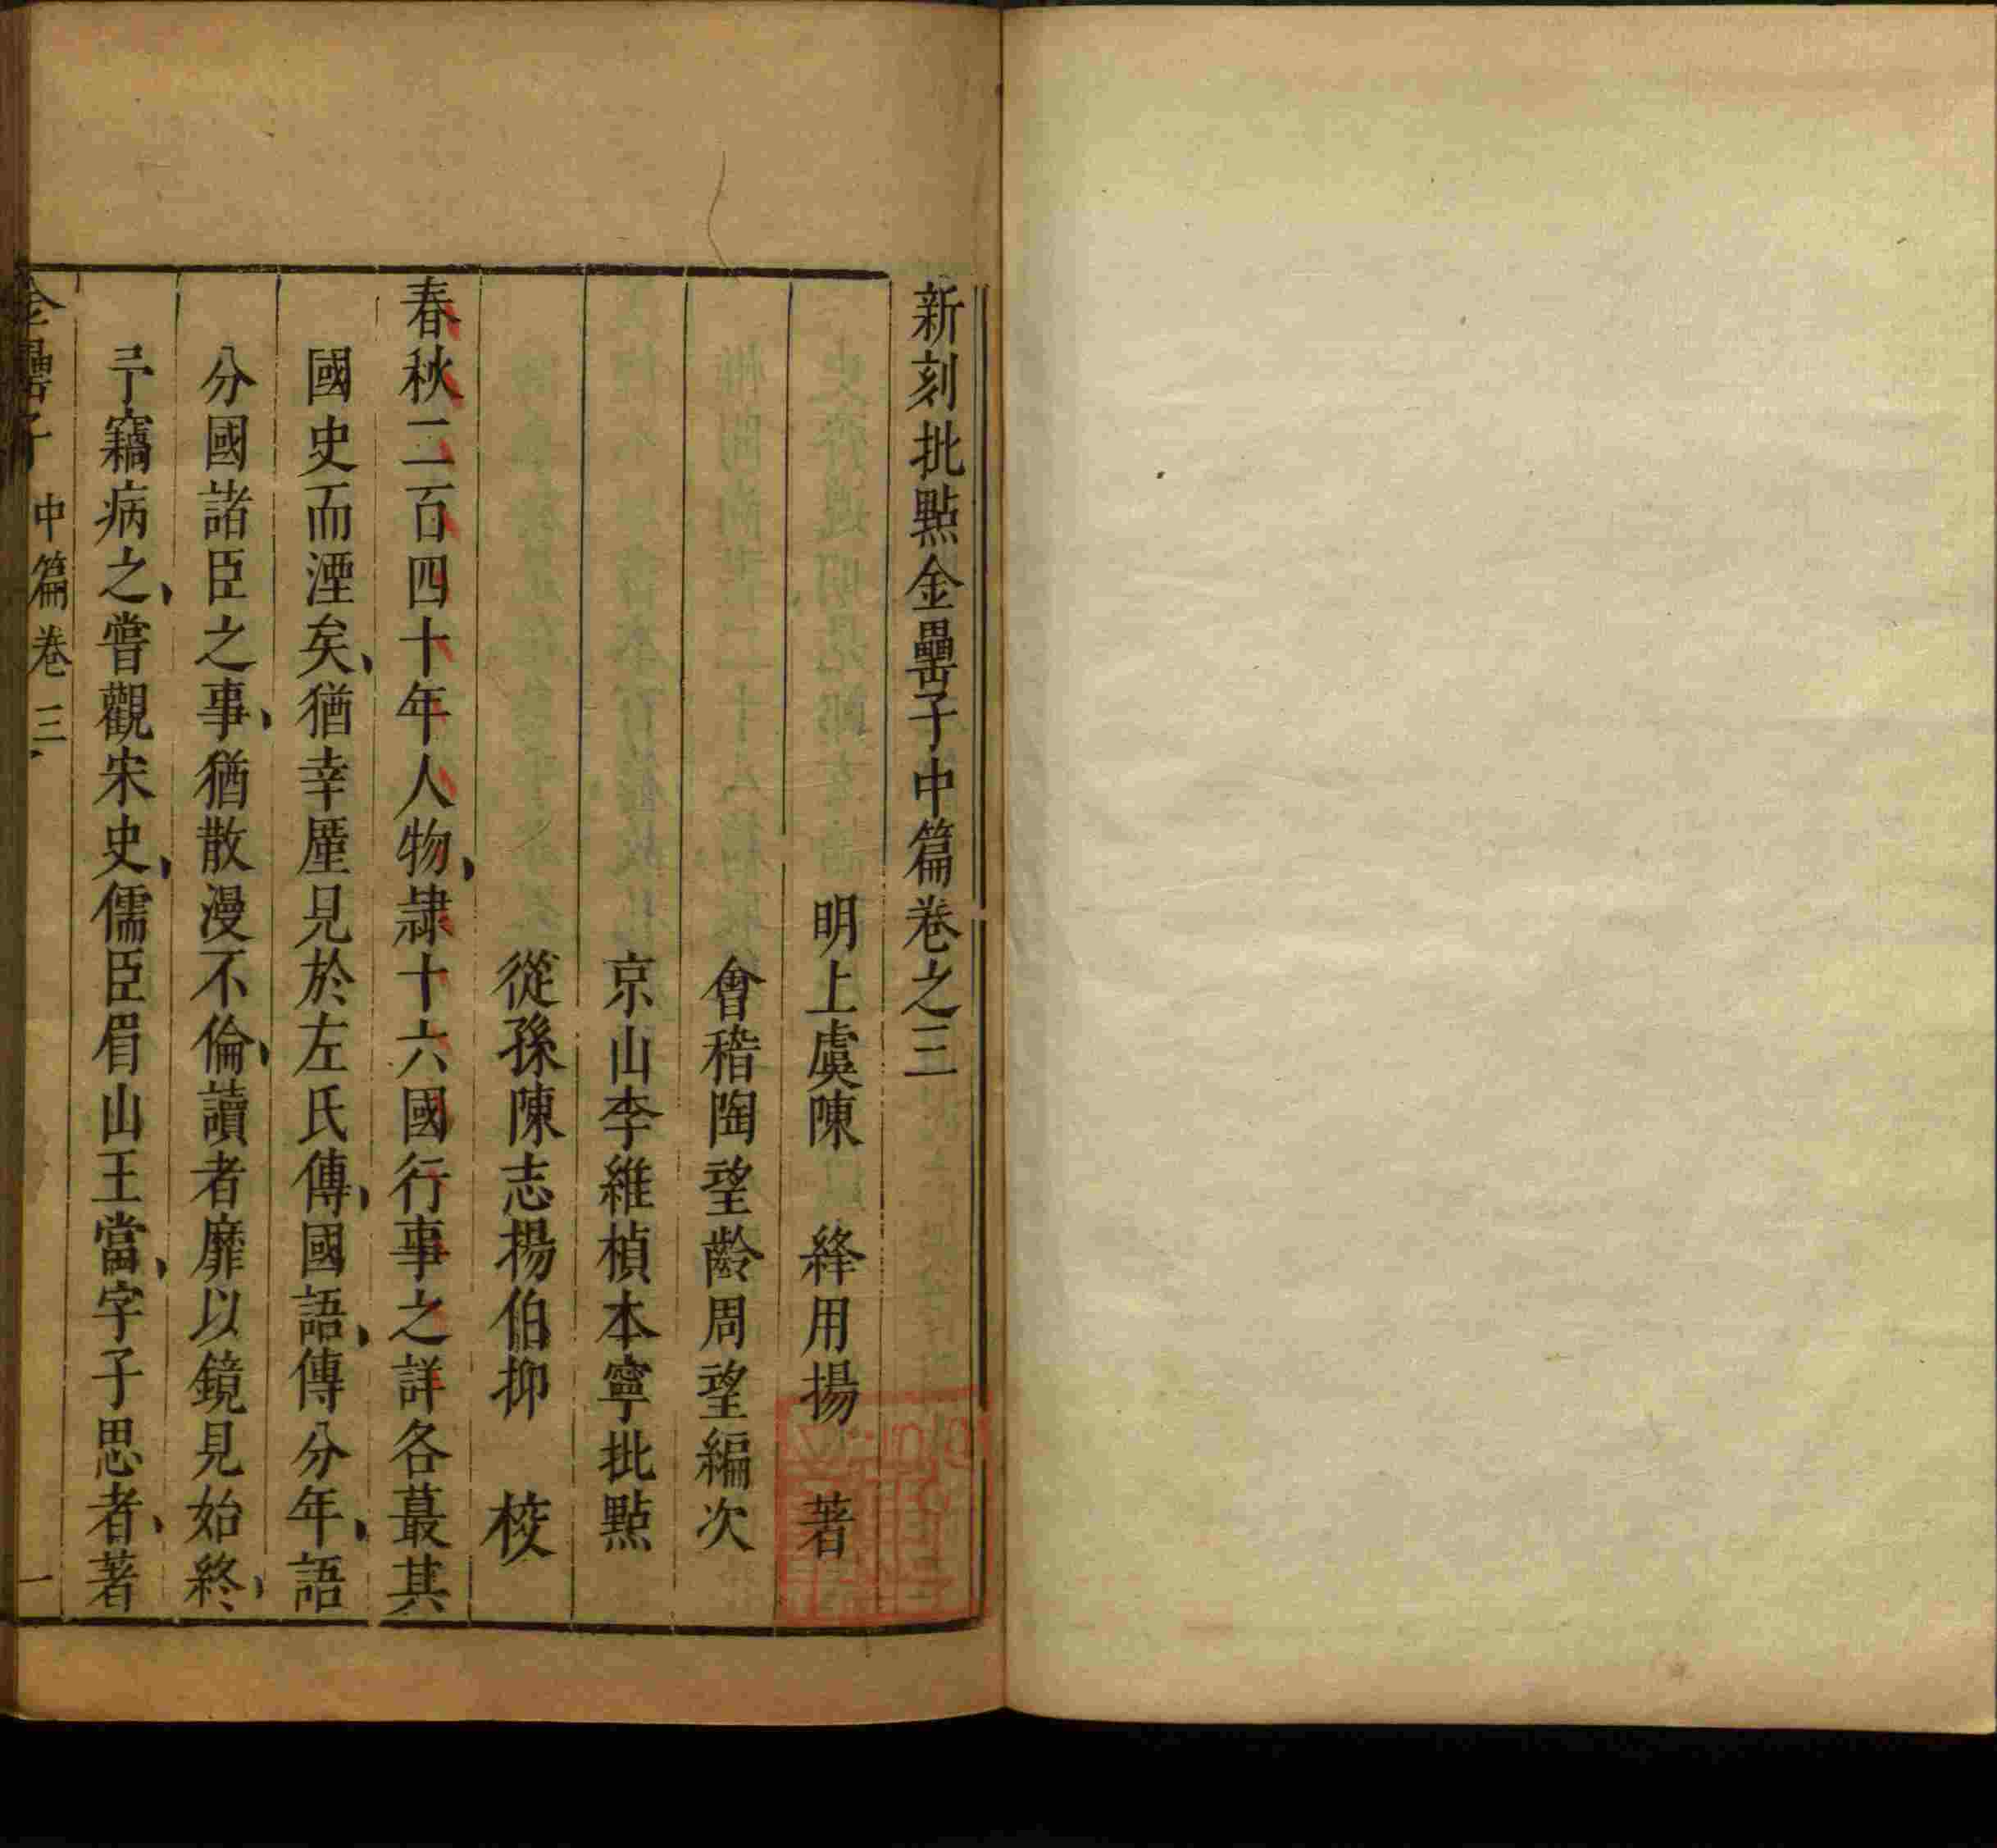 新刻批點金罍子中篇卷之三
明上虞陳　絳用揚　著
會稽陶望齡周望編次
京山李維楨本寧批點
從孫陳志揚伯抑　校
春秋二百四十年人物、隷十六國行事之詳各蕞其
國史而湮矣、猶幸厪見於左氏傳、國語、傳分年、語
分國諸臣之事、猶散漫不倫、讀者靡以鏡見始終、
予竊病之、嘗觀宋史、儒臣眉山王當、字子思者、著
金罍子　中篇卷三　一